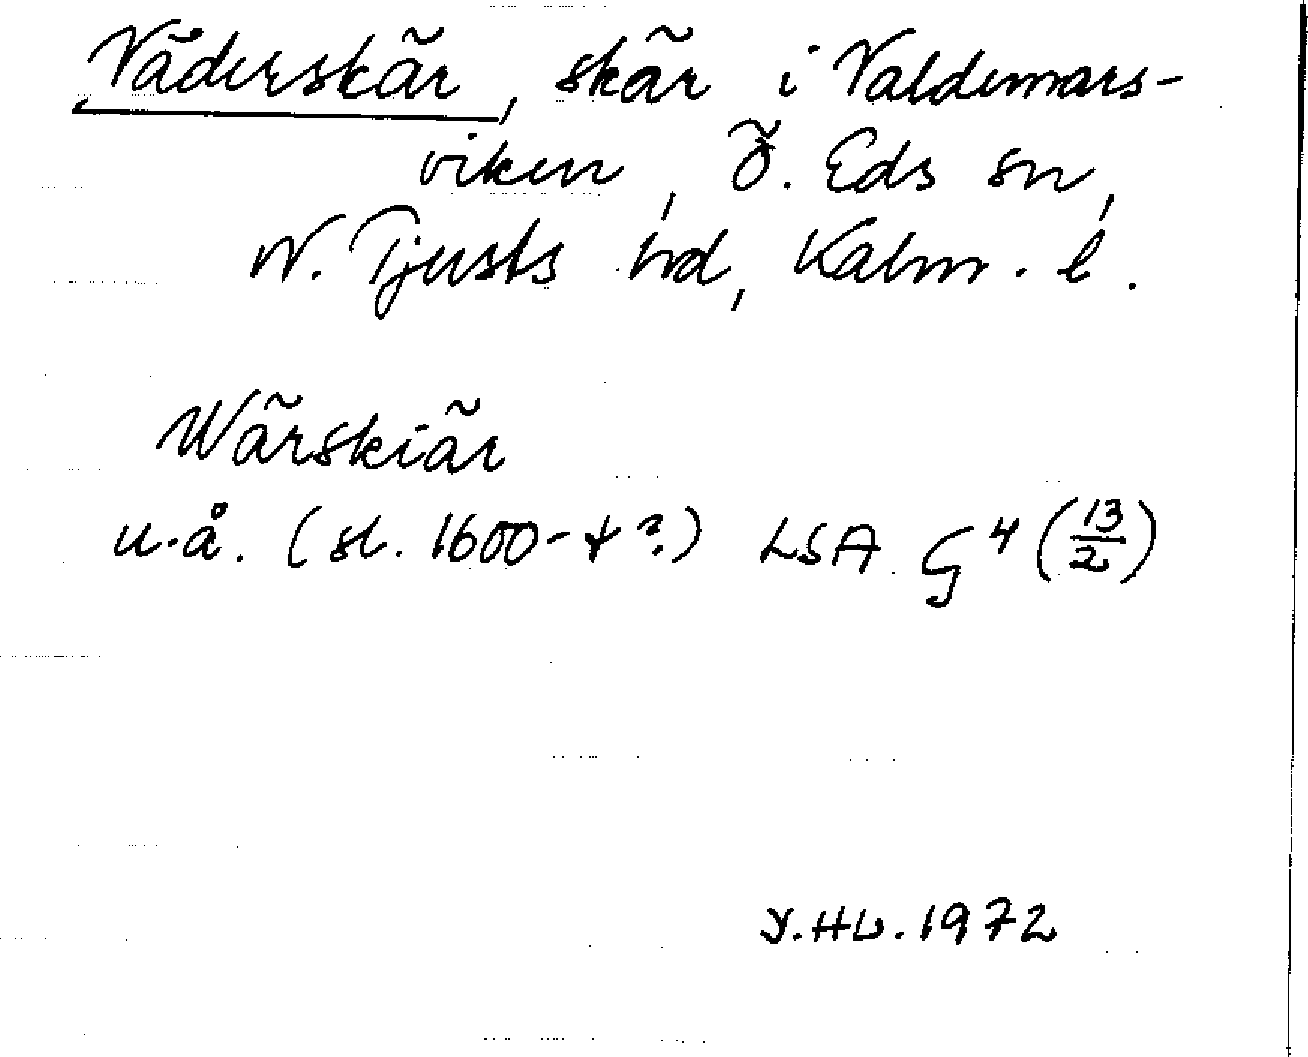 Väderskär, skär i Valdemars-
viken, Ö. Eds sn,
N. Tjusts hd, Kalm. l.
Wärskiär
u.å. (sl. 1600-t ?) LSA G 4 (13/2)
Y.HL. 1972